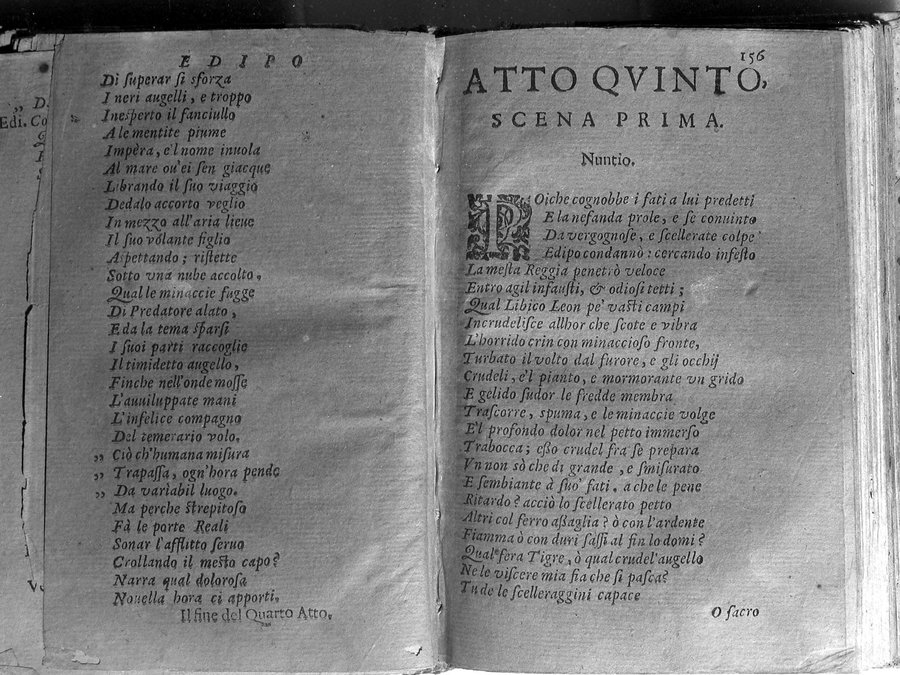 D.
Edi. Co
V
EDIPO
Di ſuperar ſi sforza
I neri augelli, e troppo
Ineſperto il fanciullo
A le mentite piume
Impera, e'l nome inuola
Al mare ou'ei ſen giacque
Librando il ſuo viaggio
Dedalo accorto veglio
In mezzo all'aria lieue
Il ſuo volante figlio
Aſpettando; riſtette
Sotto vna nube accolto.
Qual le minaccie fugge
Di Predatore alato,
E da la tema ſparſi
I ſuoi parti raccoglie
Il timidetto augello,
Finche nell'onde moſſe
L'auuiluppate mani
L'infelice compagno
Del temerario volo.
„ Ciò ch'humana miſura
„ Trapaſſa, ogn'hora pende
„ Da variabil luogo.
Ma perche ſtrepitoſo
Fà le porte Reali
Sonar l'afflitto ſeruo
Crollando il meſto capo?
Narra qual doloroſa
Nouella hora ci apporti.
Il fine del Quarto Atto.
156
ATTO QVINTO,
SCENA PRIMA.
Nuntio.
POiche cognobbe i fati a lui predetti
E la nefanda prole, e ſe conuinto
Da vergognoſe, e ſcellerate colpe
Edipo condannò: cercando infeſto
La meſta Reggia penetrò veloce
Entro agil infauſti, & odioſi tetti;
Qual Libico Leon pe' vaſti campi
Incrudeliſce allhor che ſcote e vibra
L'horrido crin con minaccioſo fronte,
Turbato il volto dal furore, e gli occhij
Crudeli, e'l pianto, e mormorante vn grido
E gelido ſudor le fredde membra
Traſcorre, ſpuma, e le minaccie volge
E'l profondo dolor nel petto immerſo
Trabocca; eſſo crudel fra ſe prepara
Vn non sò che di grande, e ſmiſurato
E ſembiante à ſuo' fati. a che le pene
Ritardo? acciò lo ſcellerato petto
Altri col ferro aſſaglia? ò con l'ardente
Fiamma ò con duri ſaſſi al fin lo domi?
Qual fera Tigre, ò qual crudel'augello
Ne le viſcere mia fia che ſi paſca?
Tu de le ſcelleraggini capace
O ſacro